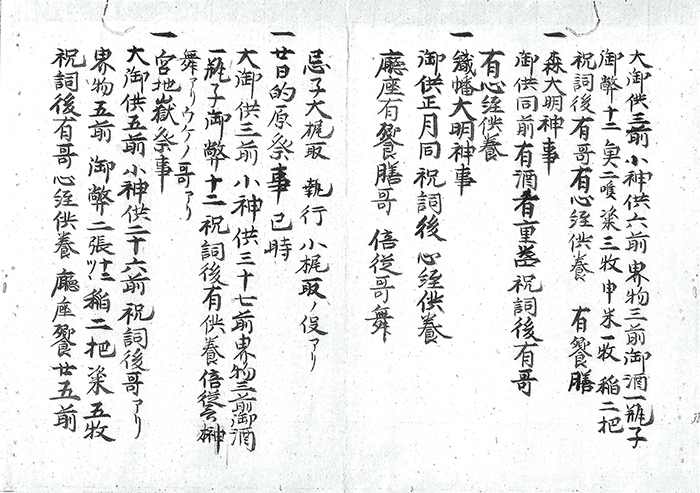 大御供三前 小神供六前 畠物三前 御酒一瓶子
御幣十二 奠二喉 粢三牧 申米一牧 稲二把
祝詞後有哥 有心経供養 有饗膳
一 森大明神事
御供同前 有酒肴一重 祝詞後有哥
有心経供養
一 織幡大明神事
御供正月同 祝詞後 心経供養
廰座有饗膳哥 倍従哥舞
忌子大梶取 執行 小梶取ノ役アリ
一 廿日的原祭事 巳時
大御供三前 小神供三十七前 畠物三前 御酒
一瓶子 御幣十二 祝詞後有供養 倍従 榊
舞アリ ウケノ哥アリ
一 宮地嶽祭事
大御供五前 小神供二十六前 祝詞後哥アリ
畠物五前 御幣二張 十二 稲二把 粢五牧
祝詞後有哥 心経供養 廰座饗廿五前